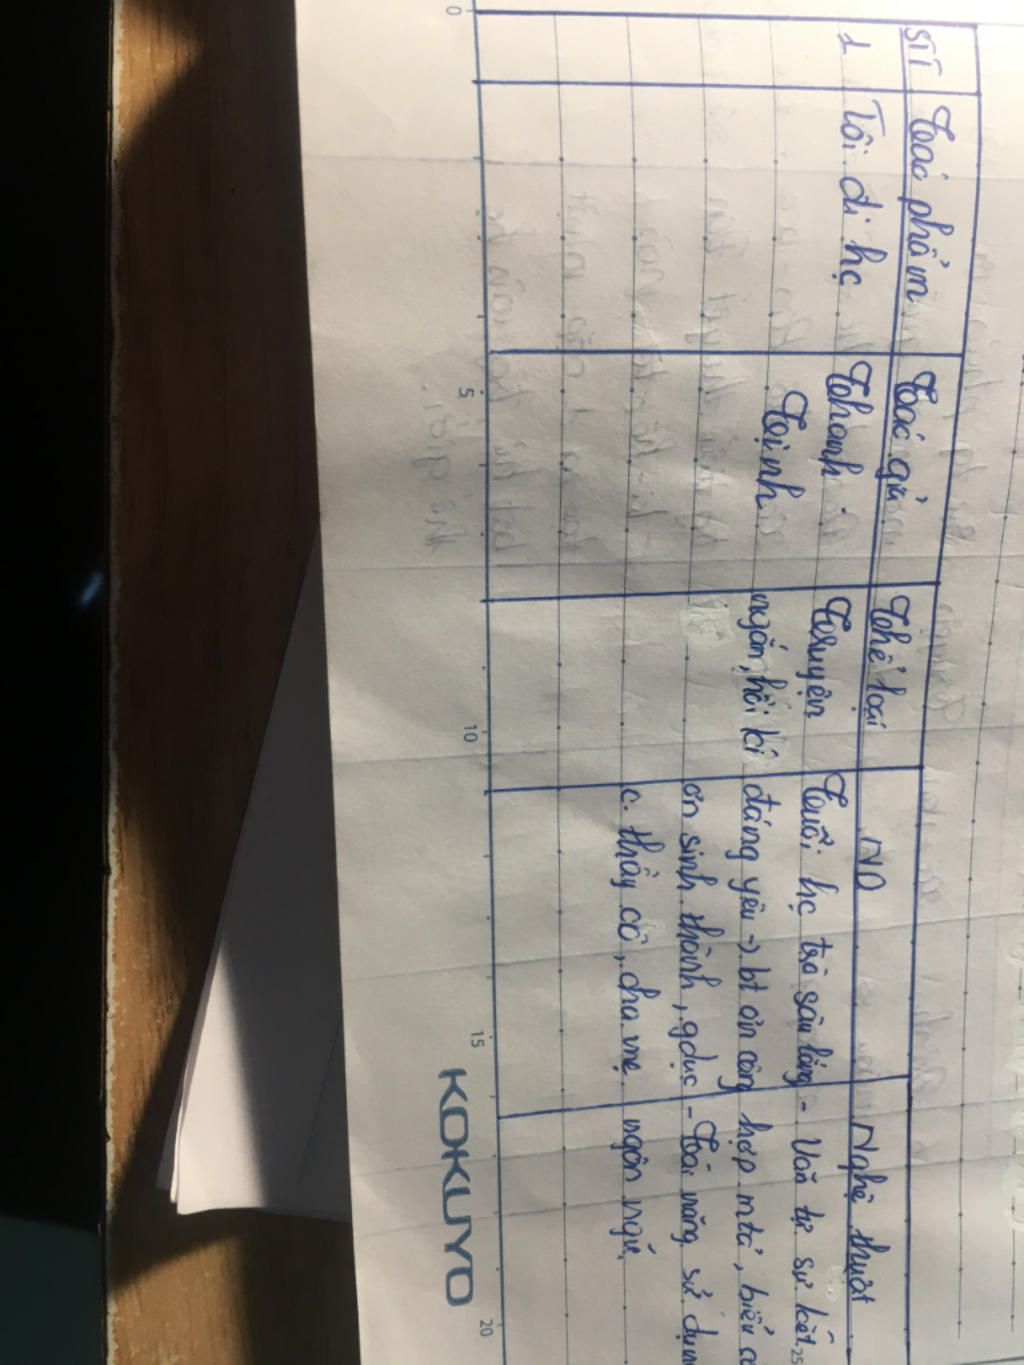 STT Tác phẩm Tác giả Thể loại ND Nghệ thuật
1 Tôi đi hc Thanh Truyện Tuổi hc trò sâu lắng - Văn tự sự kết
Tịnh ngắn, hồi kí đáng yêu -> bt ơn công hợp mtả, biểu c
ơn sinh thành, gdục - Tài năng sử dụn
c. thầy cô, cha mẹ. ngôn ngữ.
0
5
10
15
20
25
KOKUYO